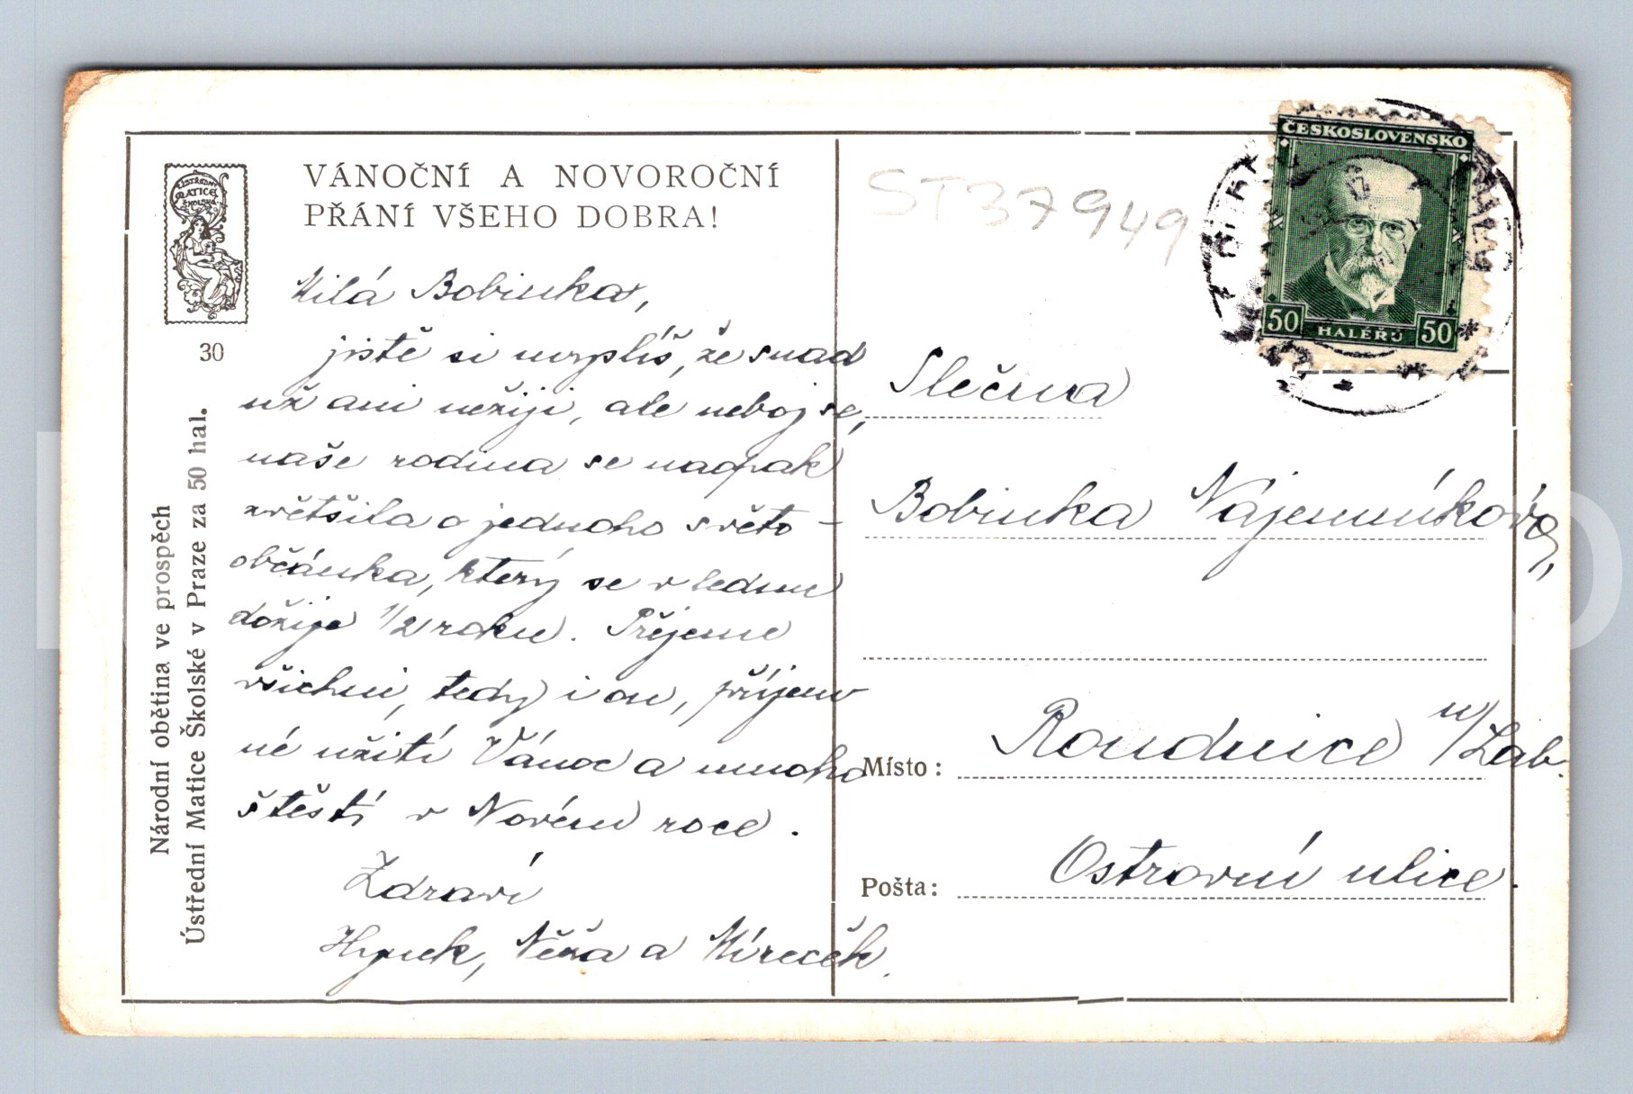 VÁNOČNÍ A NOVOROČNÍ
PŘÁNÍ VŠEHO DOBRA!
ÚSTŘEDNÍ
MATICE
ŠKOLSKÁ
30
Národní obětina ve prospěch
Ústřední Matice Školské v Praze za 50 hal.
Milá Bobinka,
jistě si myslíš, že snad
už ani nežiji, ale neboj se,
naše rodina se naopak
zvětšila o jednoho světo-
občánka, který se v lednu
dožije 1/2 roku. Přejeme
všichni, tedy i on, příjem
né užití Vánoc a mnoho
štěstí v Novém roce.
Zdraví
Hynek, Něža a Mireček.
ST37949
ČESKOSLOVENSKO
50 HALÉŘŮ 50
Slečna
Bobinka Nájemníková,
Místo: Roudnice n/Lab.
Pošta: Ostrovní ulice.